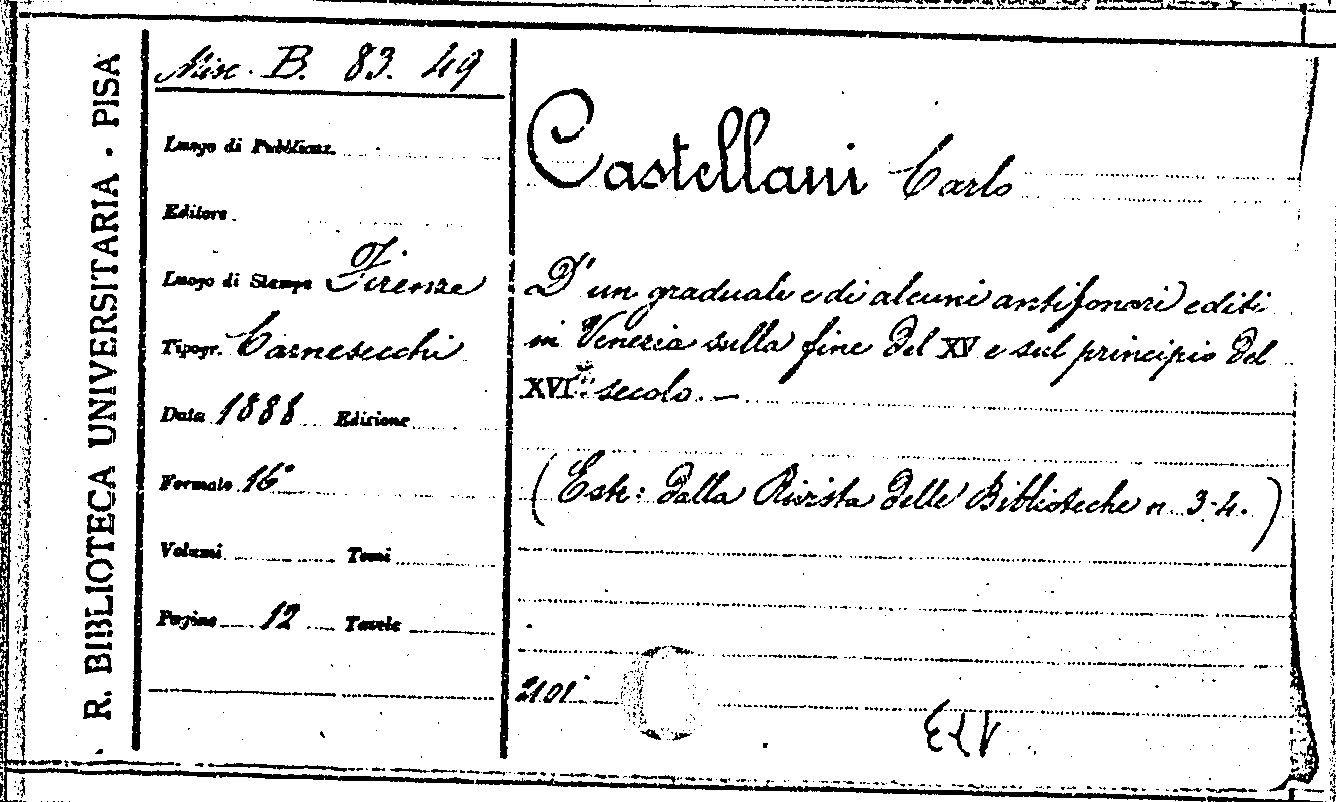 R. BIBLIOTECA UNIVERSITARIA · PISA
Misc. B. 83. 49
Luogo di Pubblicaz.
Editore
Luogo di Stampa Firenze
Tipogr. Carnesecchi
Data 1888 Edizione
Formato 16°
Volumi Tomi
Pagine 12 Tavole
Castellani Carlo
D'un graduale e di alcuni antifonari editi
in Venezia sulla fine del XV e sul principio del
XVI° secolo. —
(Estr: dalla Rivista delle Biblioteche n. 3-4.)
2101